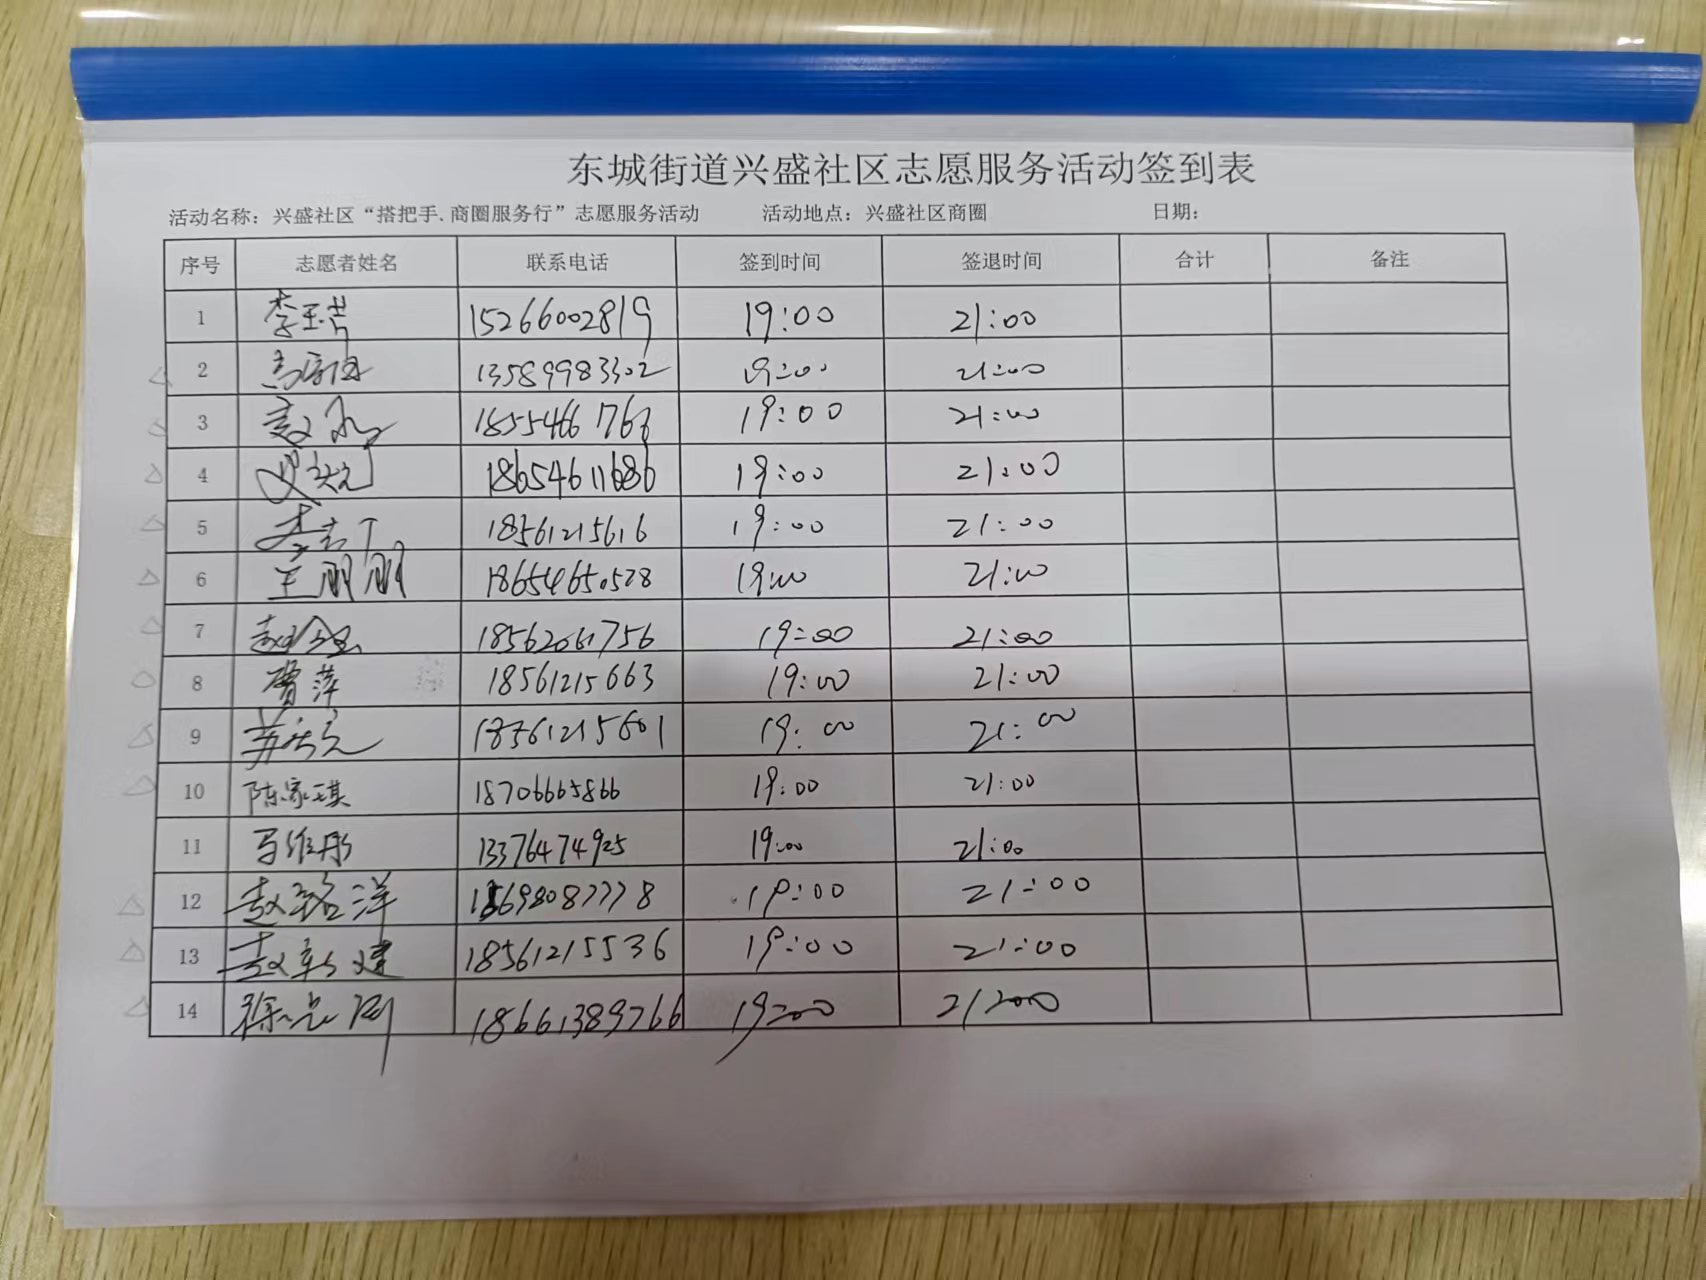 东城街道兴盛社区志愿服务活动签到表
活动名称：兴盛社区“搭把手、商圈服务行”志愿服务活动 活动地点：兴盛社区商圈 日期：
序号 志愿者姓名 联系电话 签到时间 签退时间 合计 备注
1 15266002819 19:00 21:00
2 13589983302 19:00 21:00
3 赵 19:00 21:00
4 18654611686 19:00 21:00
5 18561215616 19:00 21:00
6 王丽丽 18654650528 19:00 21:00
7 赵 18562061756 19:00 21:00
8 曹萍 18561215663 19:00 21:00
9 18561215601 19:00 21:00
10 陈家琪 18706665866 19:00 21:00
11 马维彤 13376474925 19:00 21:00
12 赵铭洋 18698087778 19:00 21:00
13 赵新建 18561215536 19:00 21:00
14 徐志刚 18661389766 19:00 21:00